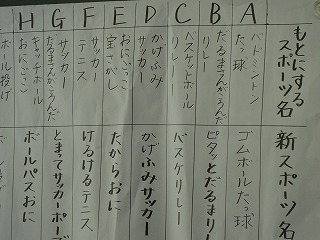 もとにする
スポーツ名
新スポーツ名
A
バドミントン
たっ球
ゴムボールたっ球
B
だるまさんがころんだ
リレー
ピタッとだるまリ
C
バスケットボール
リレー
バスケリレー
D
かげふみ
サッカー
かげふみサッカー
E
おにごっこ
宝さがし
たからおに
F
サッカー
テニス
けるけるテニス
G
サッカー
だるまさんがころんだ
とまってサッカーポーズ
H
キャッチボール
おにごっこ
ボールパスおに
ボール投げ